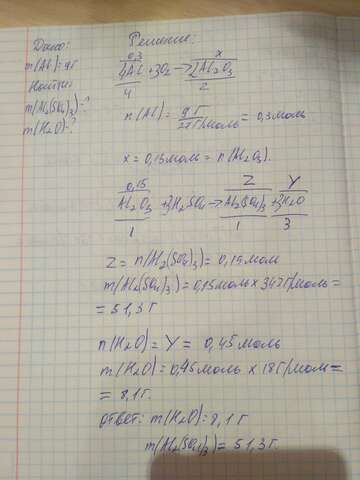 Дано:
m(Al)=9г
Найти:
m(Al₂(SO₄)₃)-?
m(H₂O)-?
Решение:
0,3 x
4Al+3O₂→2Al₂O₃
4 2
n(Al)=9г/27г/моль=0,3моль
x=0,15моль=n(Al₂O₃).
0,15 Z Y
Al₂O₃+3H₂SO₄→Al₂(SO₄)₃+3H₂O
1 1 3
Z=n(Al₂(SO₄)₃)=0,15моль
m(Al₂(SO₄)₃)=0,15моль×342г/моль=
=51,3г
n(H₂O)=Y=0,45моль
m(H₂O)=0,45моль×18г/моль=
=8,1г.
Ответ: m(H₂O)=8,1г
m(Al₂(SO₄)₃)=51,3г.